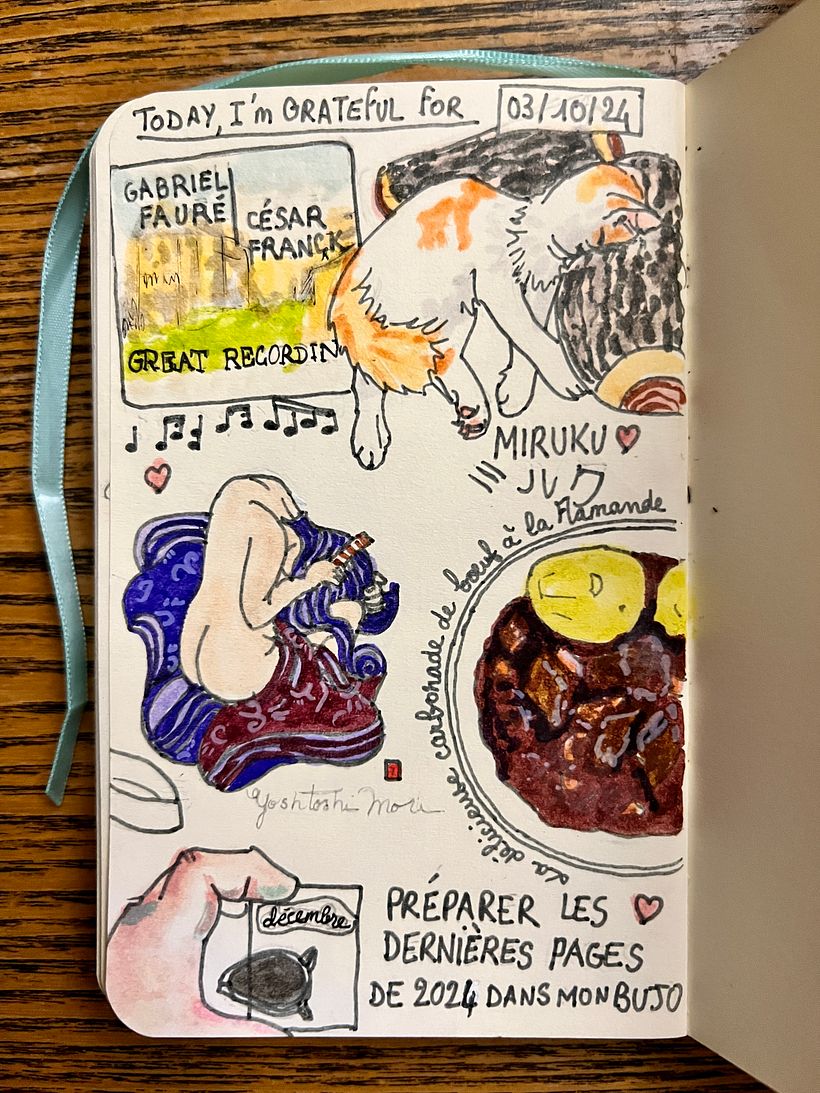 TODAY, I'm GRATEFUL FOR
03/10/24
GABRIEL
FAURÉ
CÉSAR
FRANÇK
GREAT RECORDIN
MIRUKU
ミルク
La délicieuse carbonade de bœuf à la Flamande
Yoshtoshi Mori
décembre
PRÉPARER LES
DERNIÈRES PAGES
DE 2024 DANS MON BUJO